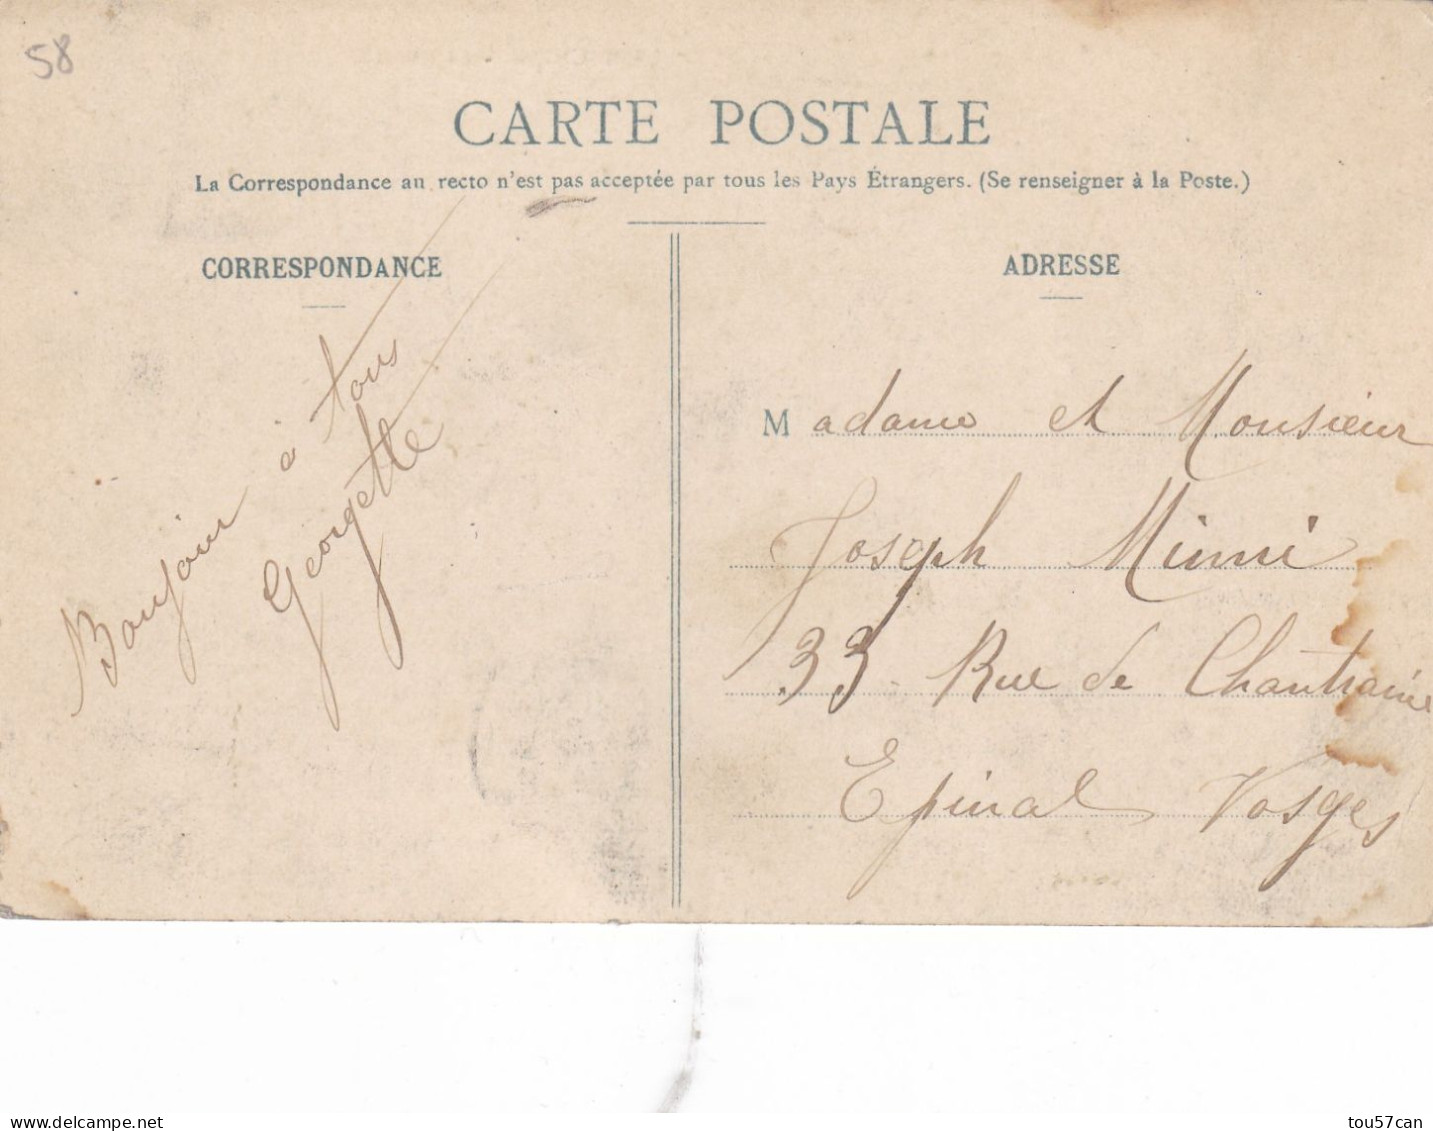 58
CARTE POSTALE
La Correspondance au recto n'est pas acceptée par tous les Pays Étrangers. (Se renseigner à la Poste.)
CORRESPONDANCE
Bonjour à tous
Georgette
ADRESSE
Madame et Monsieur
Joseph
33 Rue de Chantraine
Epinal Vosges
tou57can